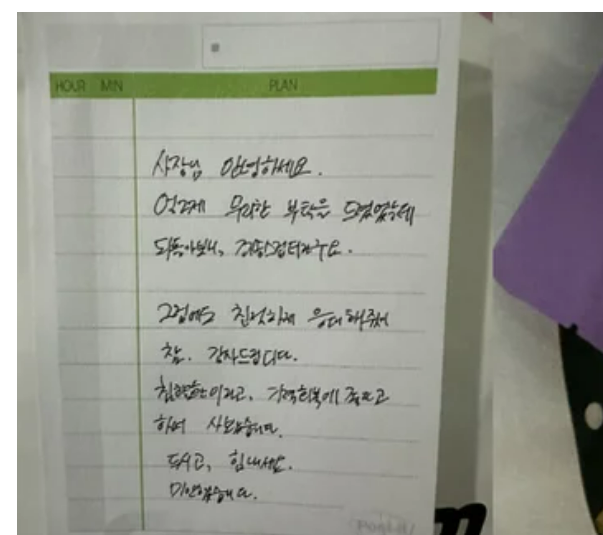 HOUR MIN PLAN
사장님 안녕하세요.
엊그제 무리한 부탁을 드렸었는데
되돌아보니, 죄송스럽더라구요.
그럼에도 친절하게 응대해주셔
참. 감사드립니다.
침향환이라고, 기력회복에 좋다고
하여 사보았습니다.
드시고, 힘내세요.
미안했습니다.
Post-it